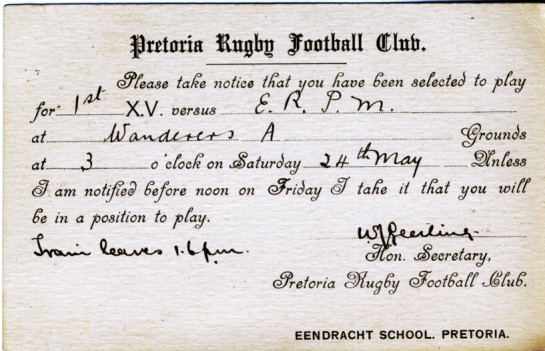 Pretoria Rugby Football Club.
Please take notice that you have been selected to play
for 1st X.V. versus E. R. P. M.
at Wanderers A Grounds
at 3 o'clock on Saturday 24th May Unless
I am notified before noon on Friday I take it that you will
be in a position to play.
Train leaves 1.6 pm.
Hon. Secretary,
Pretoria Rugby Football Club.
EENDRACHT SCHOOL. PRETORIA.